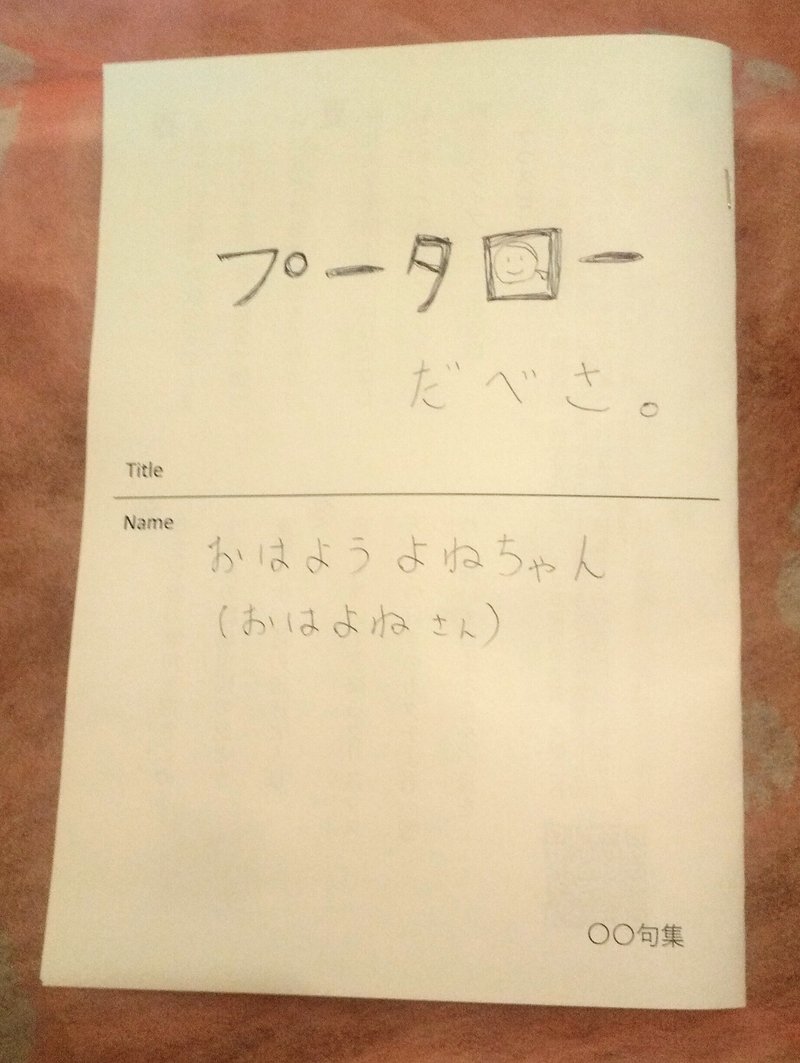 プータロー
だべさ。
Title
Name
おはようよねちゃん
(おはよねさん)
〇〇句集